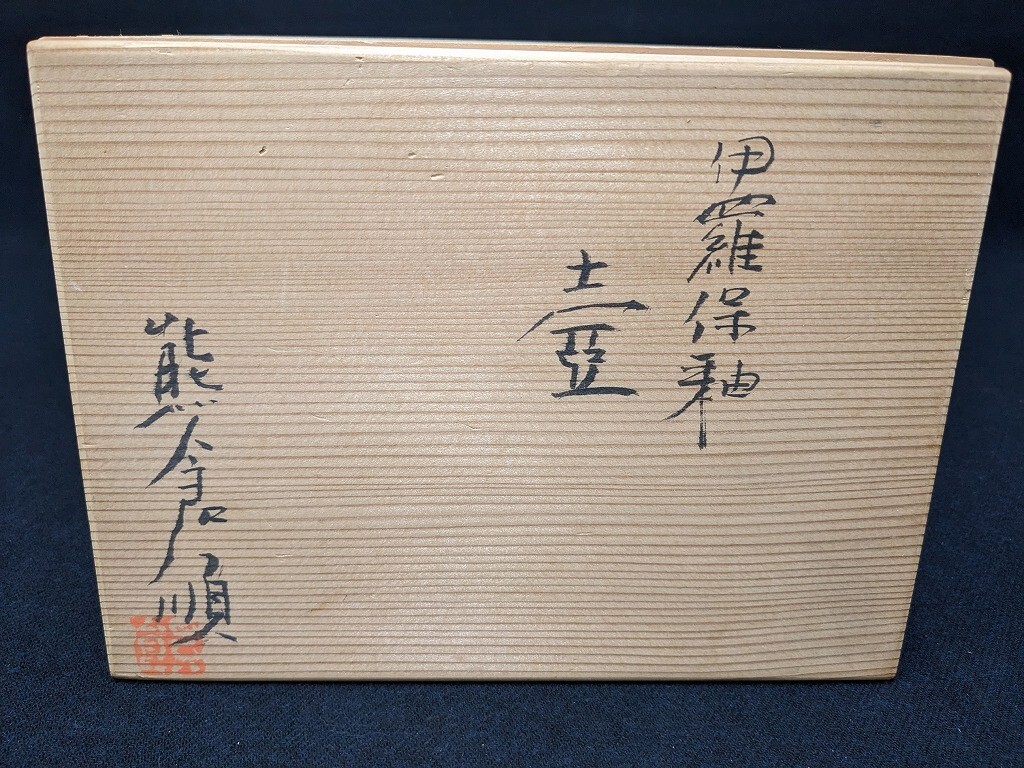 伊羅保釉
壺
熊倉順